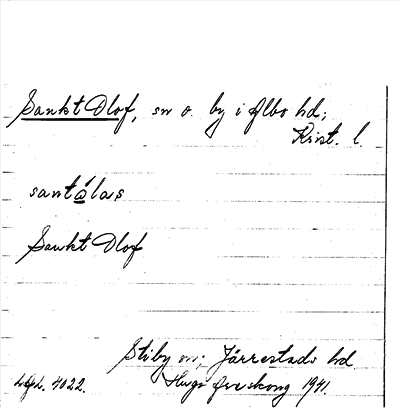 Sankt Olof, sn o. by i Albo hd;
Krist. l.
santálas
Sankt Olof
Stiby sn; Järrestads hd.
4022. Hugo Areskoug 1941.